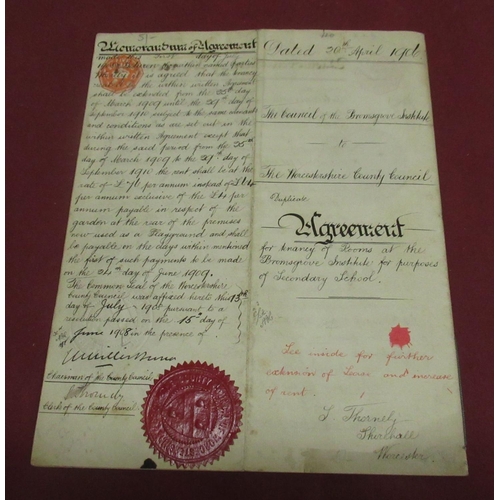 5/-
Memorandum of Agreement
day of
is agreed that the
within written Agreement
shall be extended from the 25th day
of March 1909 until the 29th day of
September 1910 subject to the same
and conditions as are set out in the
within written Agreement except that
during the said period from the 25th
day of March 1909 to the 29th day of
September 1910 the rent shall be at the
rate of per annum instead of
per annum exclusive of the £10 per
annum payable in respect of the
garden at the rear of the premises
now used as a Playground and shall
be payable on the days within mentioned
the first of such payments to be made
on the day of June 1909.
The Common Seal of the Worcestershire
County Council was affixed hereto this 13th
day of July pursuant to a
resolution passed on the 15th day of
June 1908 in the presence of
Chairman of the County Council.
Clerk of the County Council.
Dated 20th April 1906
The Council of the Bromsgrove Institute
to
The Worcestershire County Council
Duplicate
Agreement
for tenancy of Rooms at the
Bromsgrove Institute for purposes
of Secondary School.
See inside for further
extension of Lease and increase
of rent.
Shirehall
Worcester.